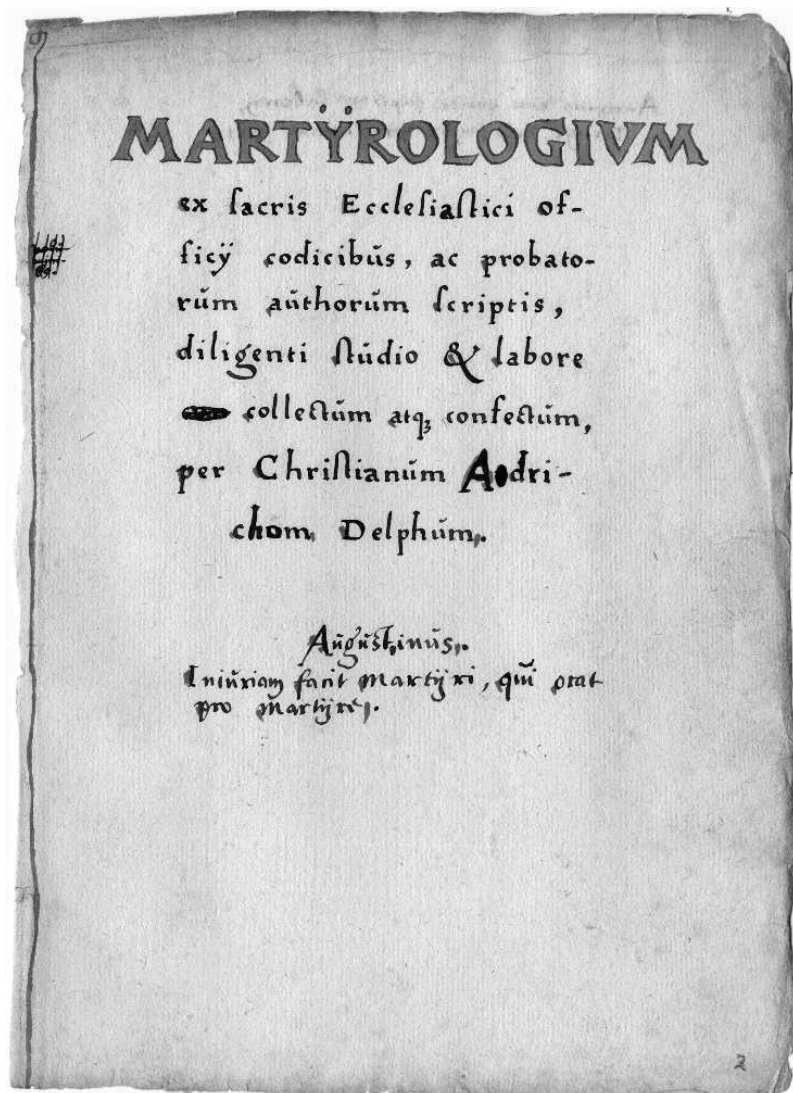 MARTŸROLOGIVM
ex ſacris Eccleſiaſtici of-
ficÿ codicibŭs, ac probato-
rŭm aŭthorŭm ſcriptis,
diligenti ſtŭdio & labore
collectŭm atq₃ confectŭm,
per Chriſtianŭm Adri-
chom Delphŭm.
Aŭgŭstinŭs.
Iniŭriam facit Martÿri, qŭi orat
pro Martÿre.
2